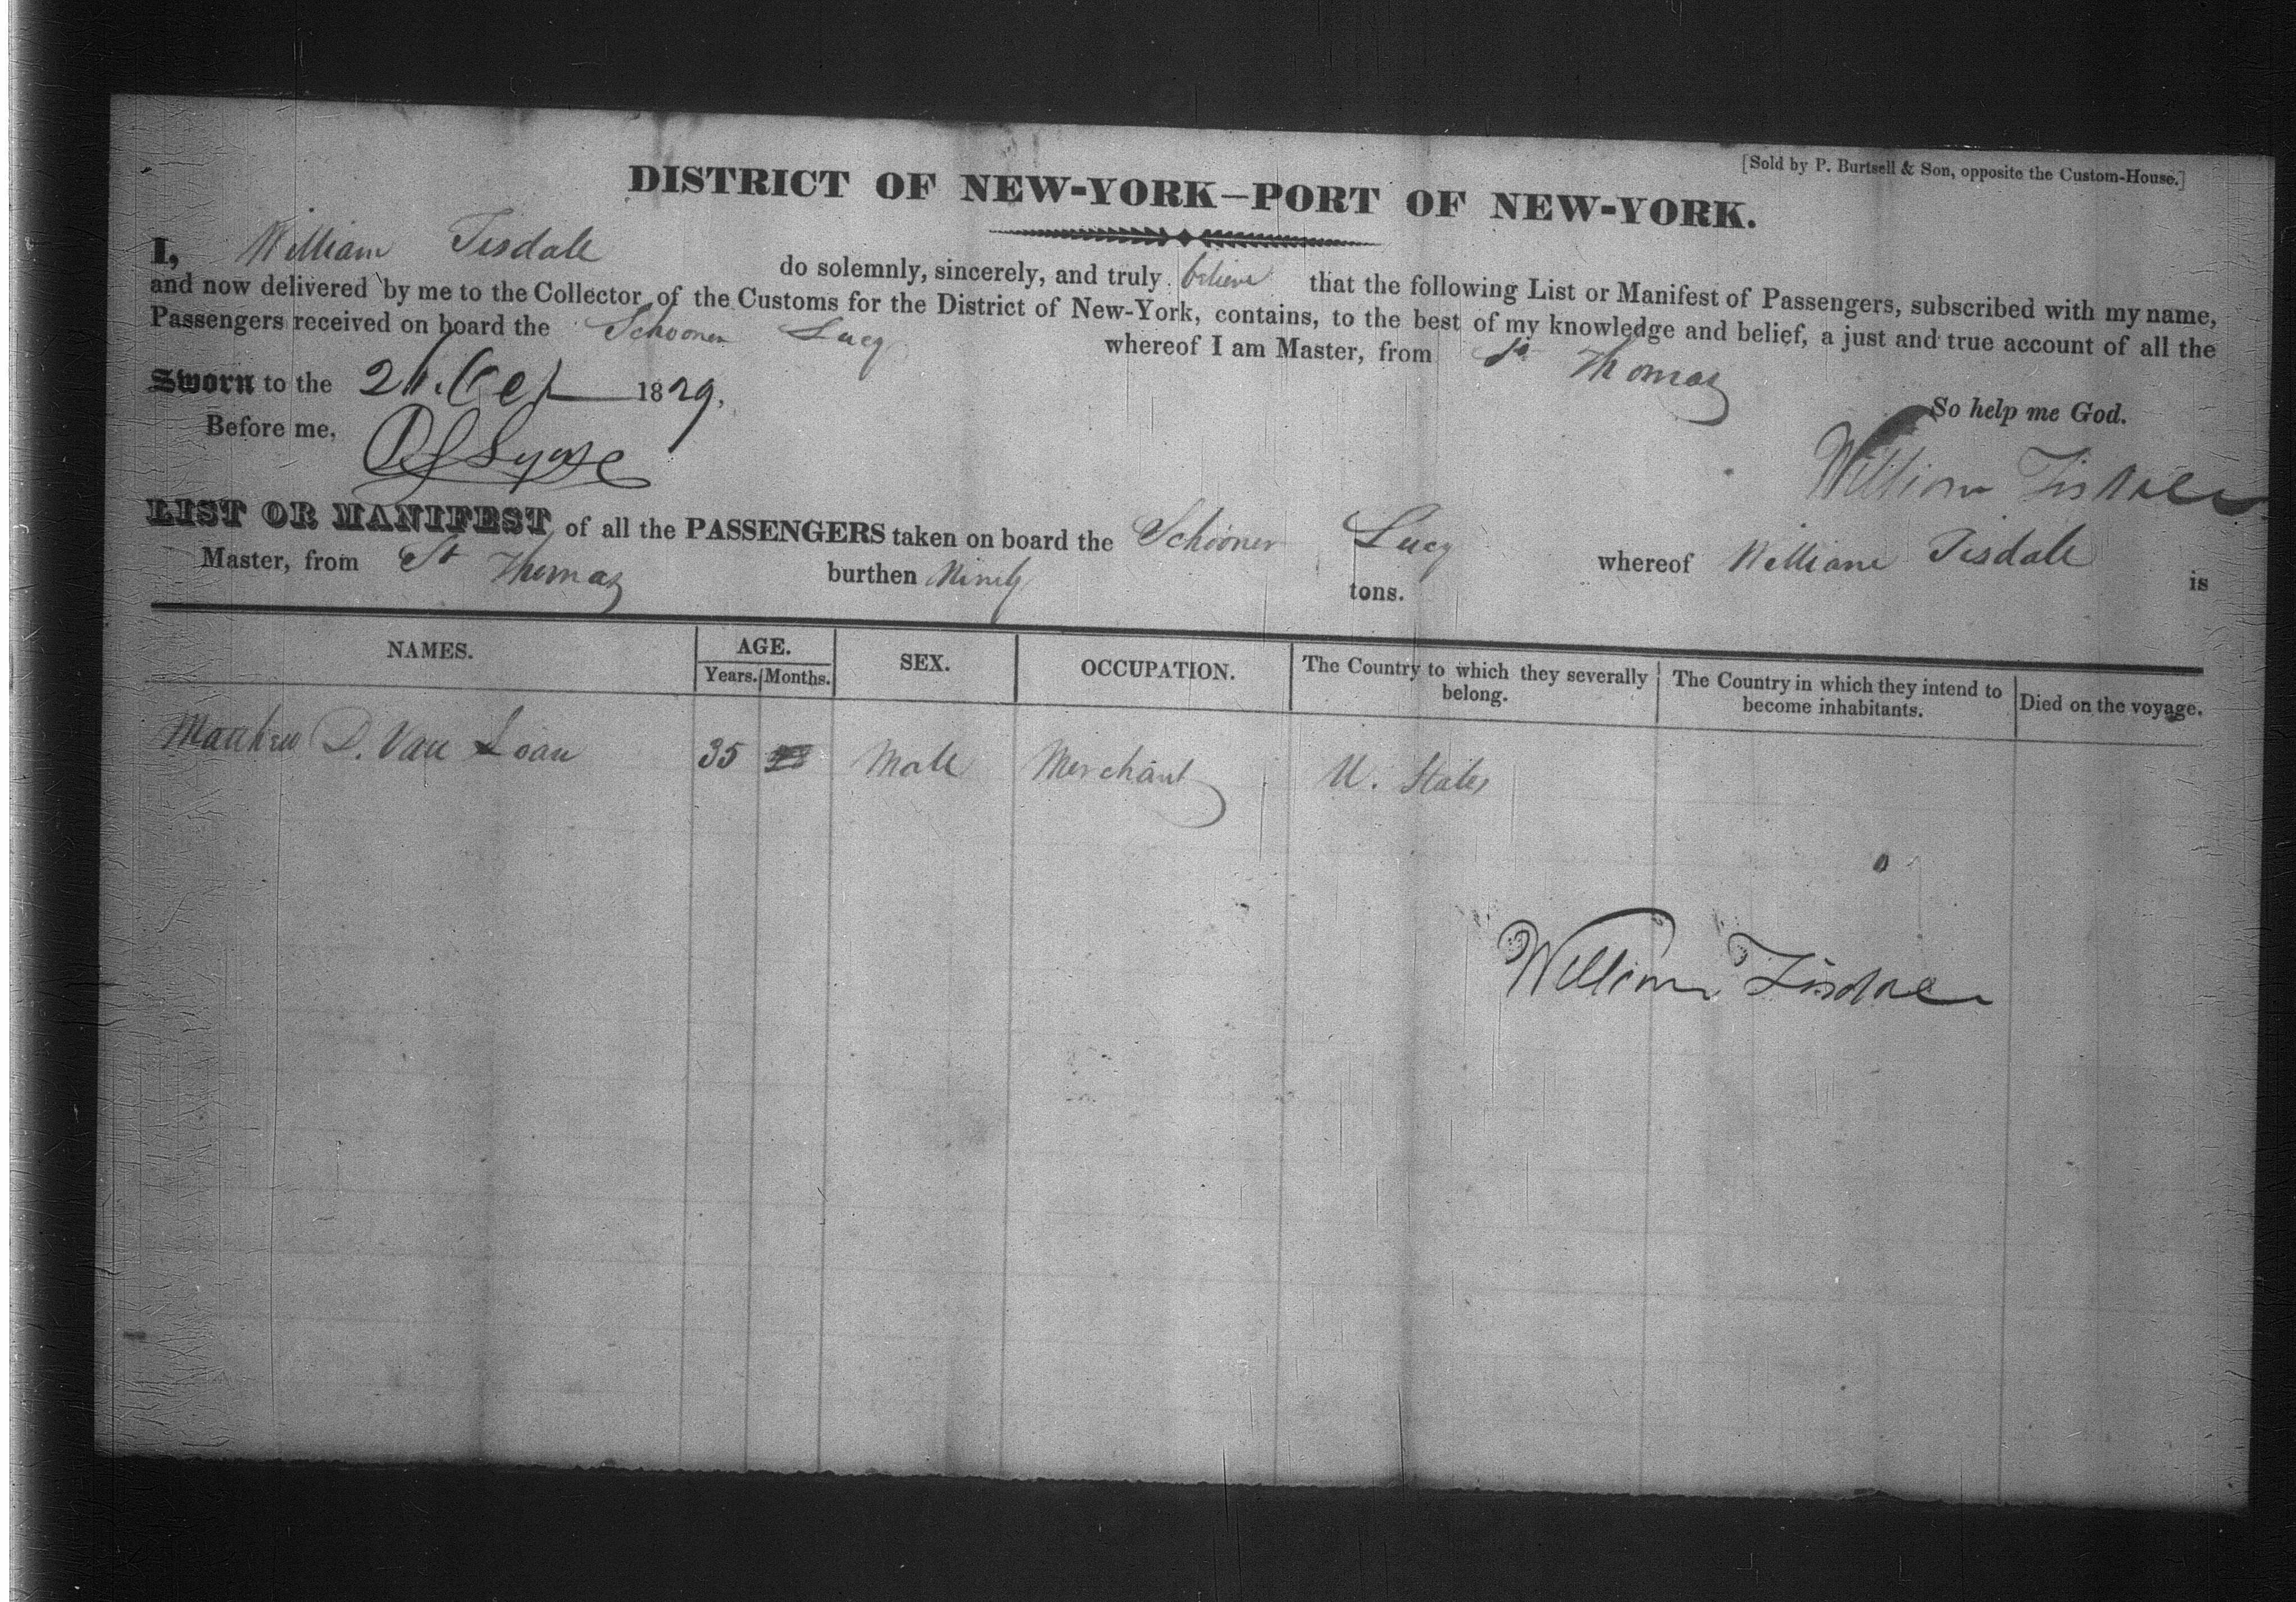 [Sold by P. Burtsell & Son, opposite the Custom-House.]
DISTRICT OF NEW-YORK—PORT OF NEW-YORK.
I, William Tisdale do solemnly, sincerely, and truly believe that the following List or Manifest of Passengers, subscribed with my name,
and now delivered by me to the Collector of the Customs for the District of New-York, contains, to the best of my knowledge and belief, a just and true account of all the
Passengers received on board the Schooner Lucy whereof I am Master, from St Thomas
Sworn to the 21. Oct 1829.
So help me God.
Before me,
William Tisdale
LIST OR MANIFEST of all the PASSENGERS taken on board the Schooner Lucy whereof William Tisdale is
Master, from St Thomas burthen Ninety tons.
NAMES. AGE. SEX. OCCUPATION. The Country to which they severally belong. The Country in which they intend to become inhabitants. Died on the voyage.
Years. Months.
Matthew D. Van Loan 35 Male Merchant U. States
William Tisdale